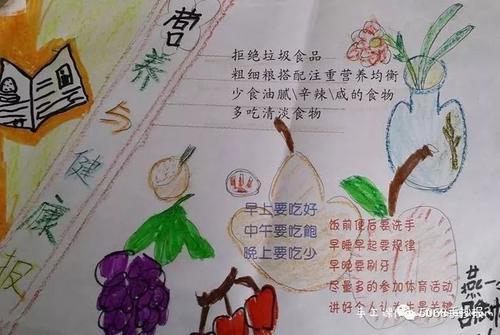 营养与健康报
拒绝垃圾食品
粗细粮搭配注重营养均衡
少食油腻\辛辣\咸的食物
多吃清淡食物
早上要吃好
中午要吃饱
晚上要吃少
饭前便后要洗手
早睡早起要规律
早晚要刷牙
尽量多的参加体育活动
讲好个人
燕